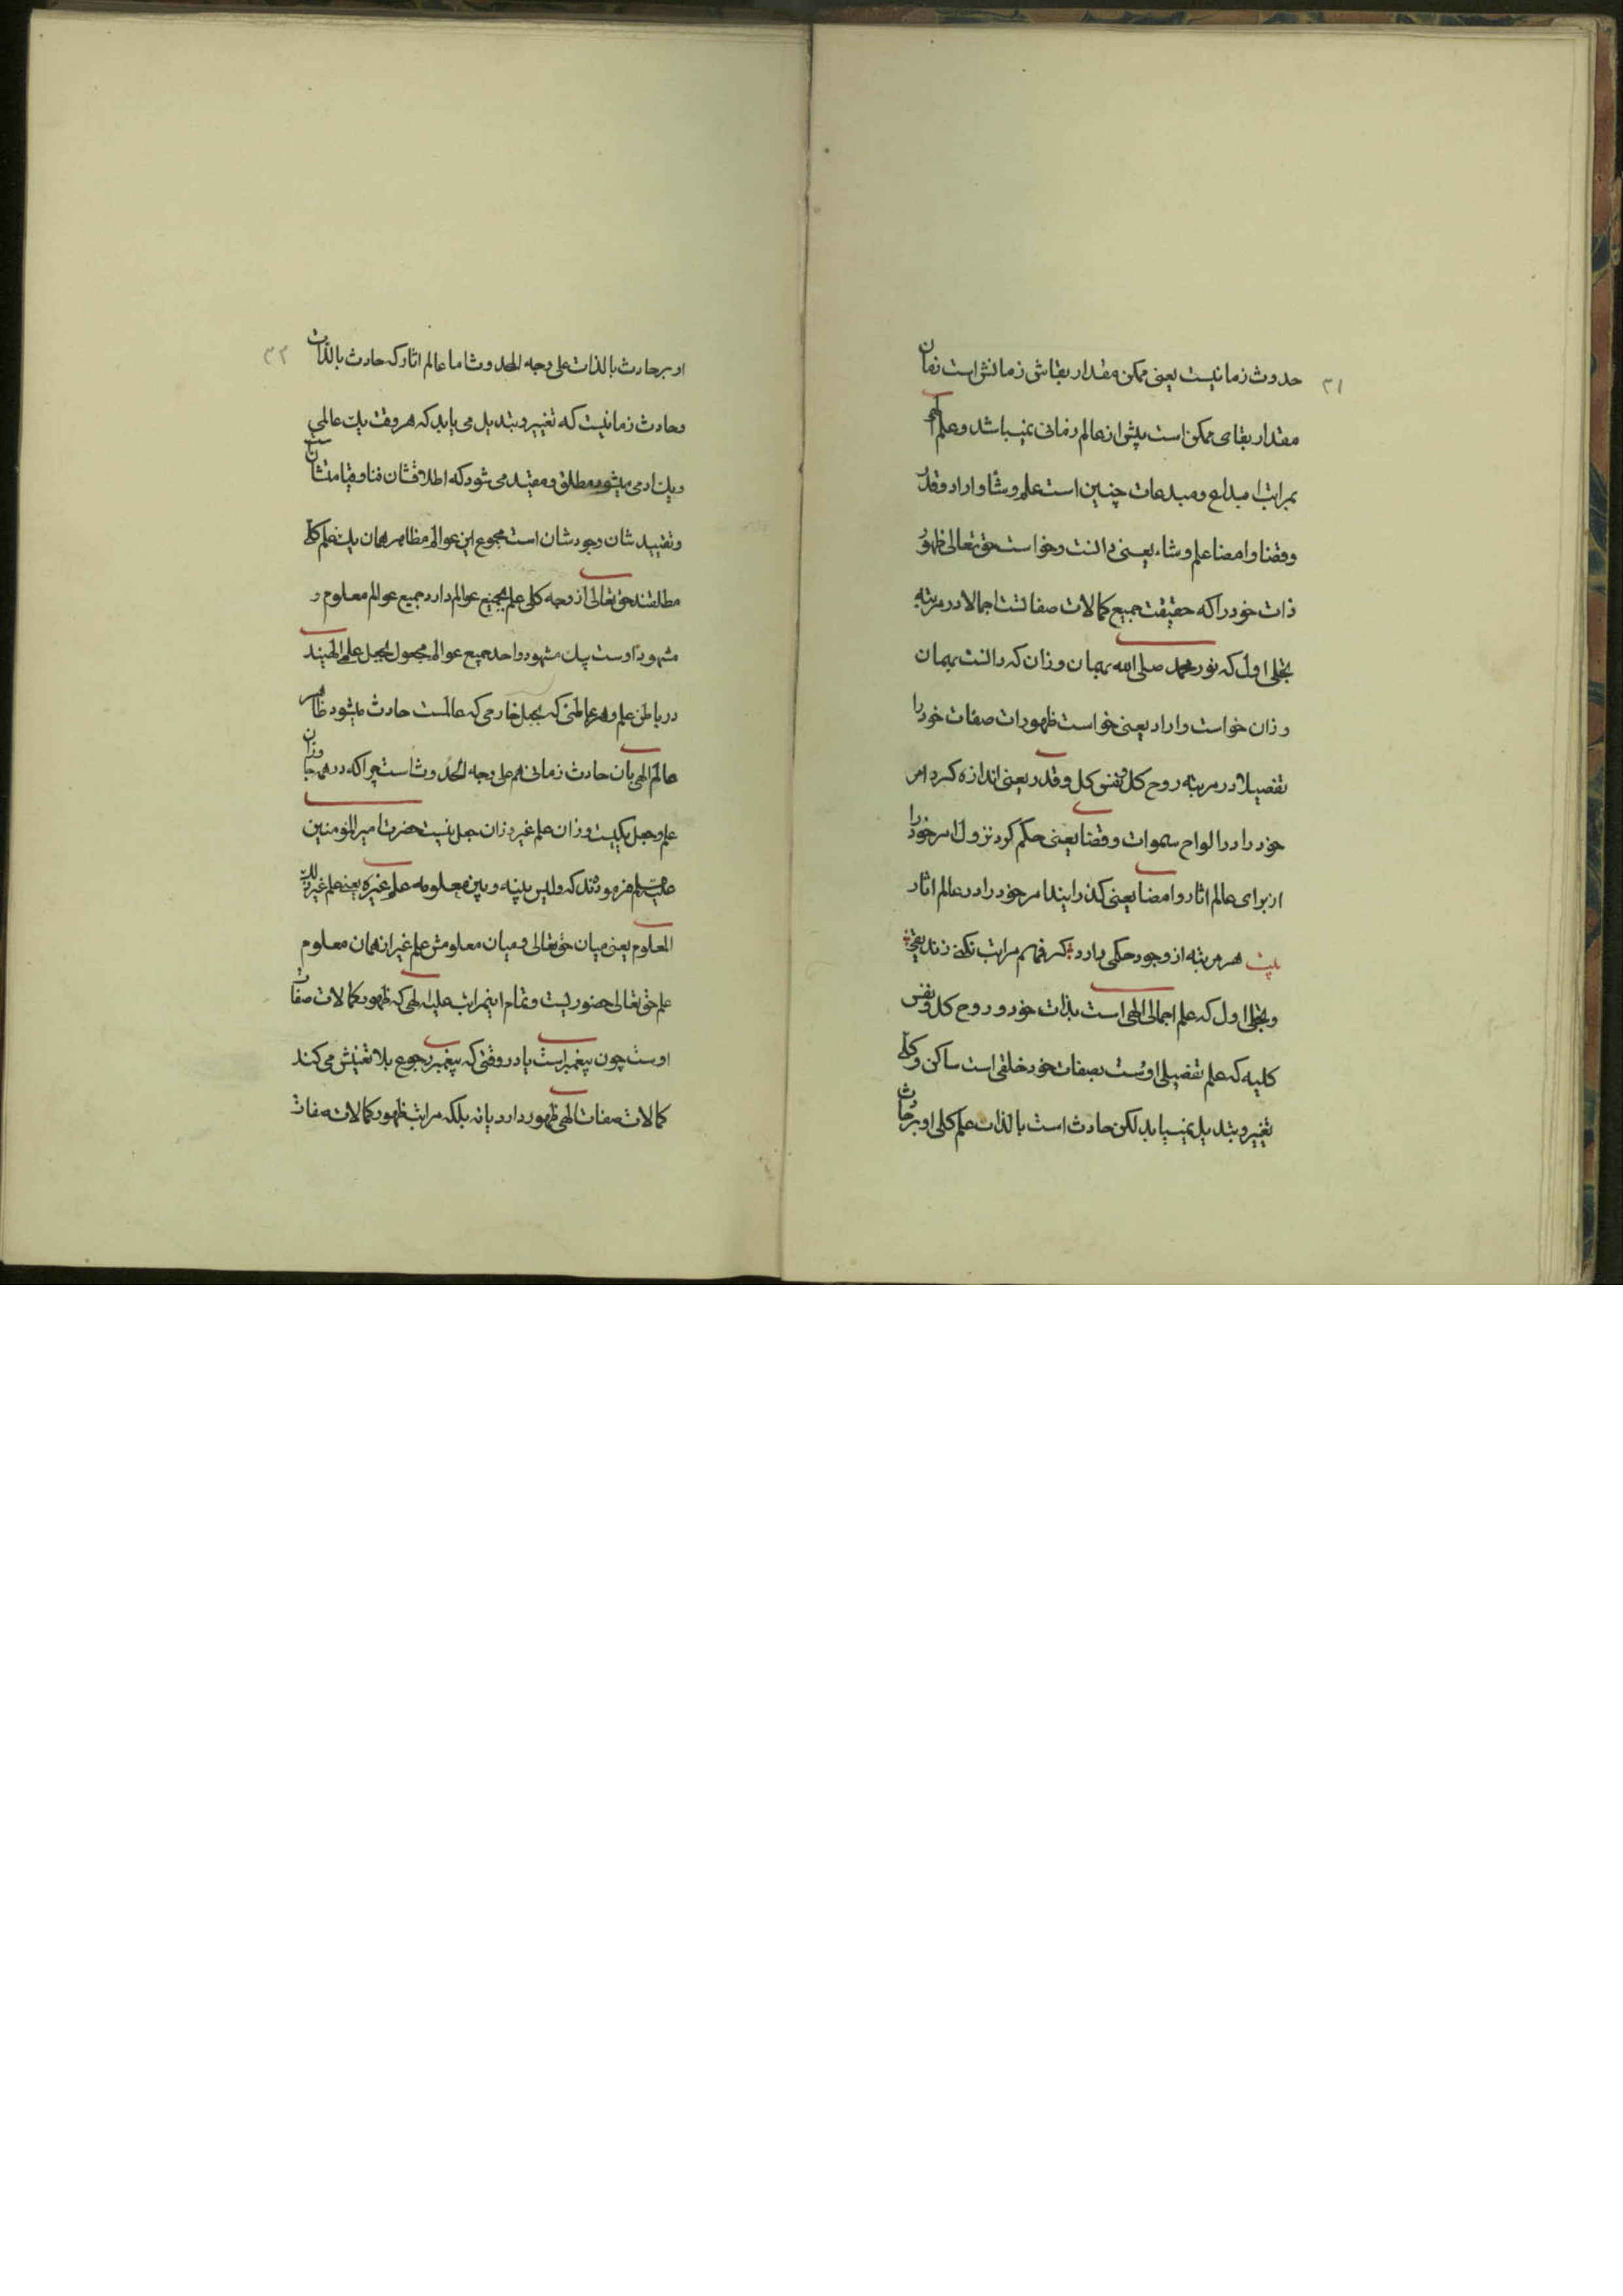 ۳۱
حدوث زمانیست یعنی ممکن مقدار بقاش زمانش است زمان
مقدار بقای ممکن است پیش از عالم زمانی نمیباشد و علم الهی
بمراتب ابداع و مبدعات چنین است علم و شاء و اراد و قدر
و قضا و امضا علم و شاء یعنی دانست و خواست حق تعالی ظهور
ذات خود را که حقیقت جمیع کمالات صفاتست اجمالا در مرتبه
تجلی اول که نور محمد صلی الله بهمان وزان که دانست بهمان
وزان خواست و اراد یعنی خواست ظهورات صفات خود را
تفصیلا در مرتبه روح کل و نفس کل و قدر یعنی اندازه کرد امر
خود را در الواح سموات و قضا یعنی حکم کرد نزول امر خود را
از برای عالم اثار و امضا یعنی گذرایند امر خود را در عالم اثار
بیت هر مرتبه از وجود حکمی دارد کر مراتب نکنی زندیقی
و تجلی اول که علم اجمالی الهی است بذات خود و روح کل و نفس
کلیه که علم تفصیلی اوست بصفات خود خلقی است ساکن و کلی
تغییر و تبدیل نمییابد لکن حادث است بالذات علم کلی او بر حادث
۳۲
او بر حادث بالذات علی وجه الحدوث اما عالم اثار که حادث بالذات
و حادث زمانیست که تغییر و تبدیل می یابد که هر وقت یک عالمی
و یک ادمی میشود مطلق و مقید می شود که اطلاقشان فنا و قیامتشان
و تقیید شان وجود شان است مجموع این عوالم مظاهر همان یک علم کلی
مطلقند حق تعالی از وجه کلی علم بجمیع عوالم دارد جمیع عوالم معلوم و
مشهود اوست یک مشهود واحد جمیع عوالم مجعول بجعل علم الهیند
در باطن علم و هر عالمی که بجعل خارجی که عالمست حادث میشود ظاهر
عالم الهی بان حادث زمانی هم علی وجه الحدوث است چرا که در همه جا وزان
علم و جعل یکیست وزان علم غیر وزان جعل نیست حضرت امیر المومنین
فرمودند که و لیس بینه و بین معلومه علم غیره یعنی علم غیر ذلک
المعلوم یعنی میان حق تعالی و میان معلومش علم غیر از همان معلوم
علم حق تعالی حضوریست و تمام این مراتب الهی که ظهور کمالات صفات
اوست چون پیغمبر است یا در وقتی که پیغمبر رجوع بلا تعینش می کند
کمالات صفات الهی ظهور دارد یا نه بلکه مراتب ظهور کمالات صفات